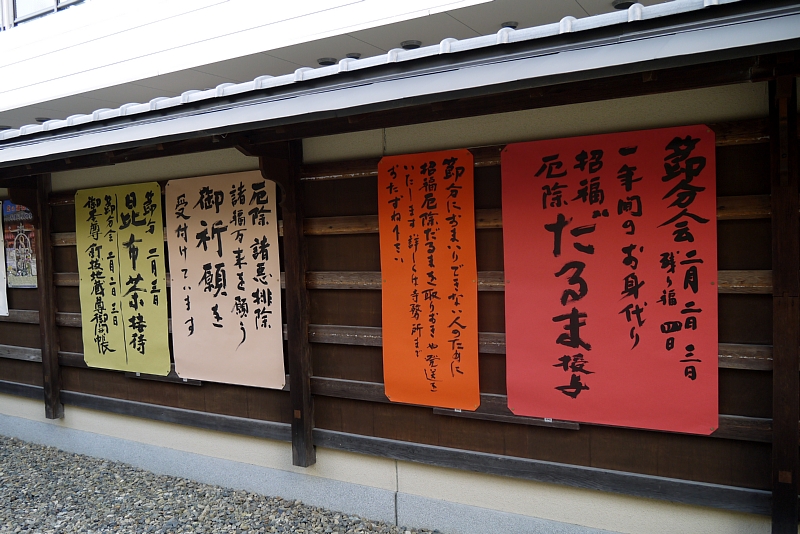 節分会 二月二日三日
残り福 四日
一年間のお身代り
招福
厄除
だるま授与
節分におまいりできない人のために
招福厄除だるまを取りおきや発送を
いたします詳しくは寺務所まで
おたずね下さい
厄除 諸悪排除
諸福万来を願う
御祈願を
受付けています
節分 二月三日
昆布茶接待
節分会 二月二日三日
御本尊 釘抜地蔵尊御開帳